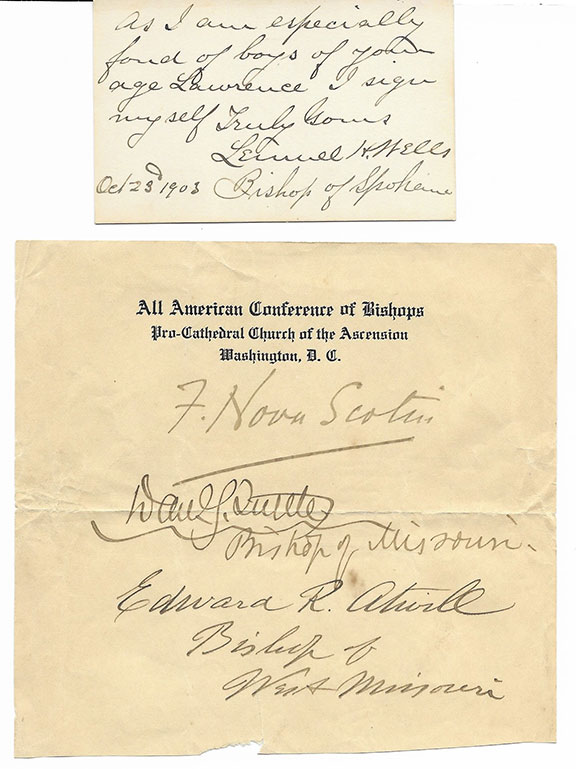 As I am especially
fond of boys of your
age Lawrence I sign
myself Truly Yours
Lemuel H. Wells
Oct 23d 1903 Bishop of Spokane
All American Conference of Bishops
Pro-Cathedral Church of the Ascension
Washington, D. C.
F. Nova Scotia
Dan'l S. Tuttle
Bishop of Missouri.
Edward R. Atwill
Bishop of
West Missouri